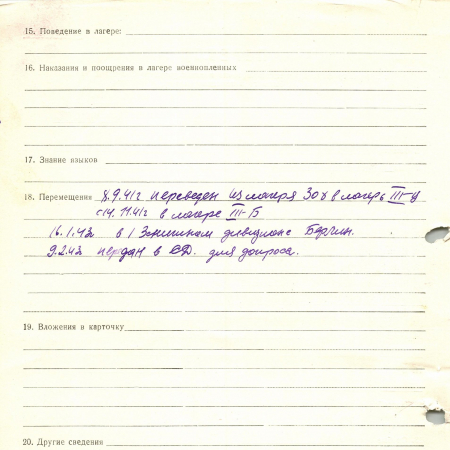 15. Поведение в лагере:
16. Наказания и поощрения в лагере военнопленных
17. Знание языков
18. Перемещения 8.9.41г переведен из лагеря 308 в лагерь III-
с 14.11.41г в лагере III-Б
16.1.42 в дивизионе Берлин.
9.2.42 передан в СД. для допроса.
19. Вложения в карточку
20. Другие сведения